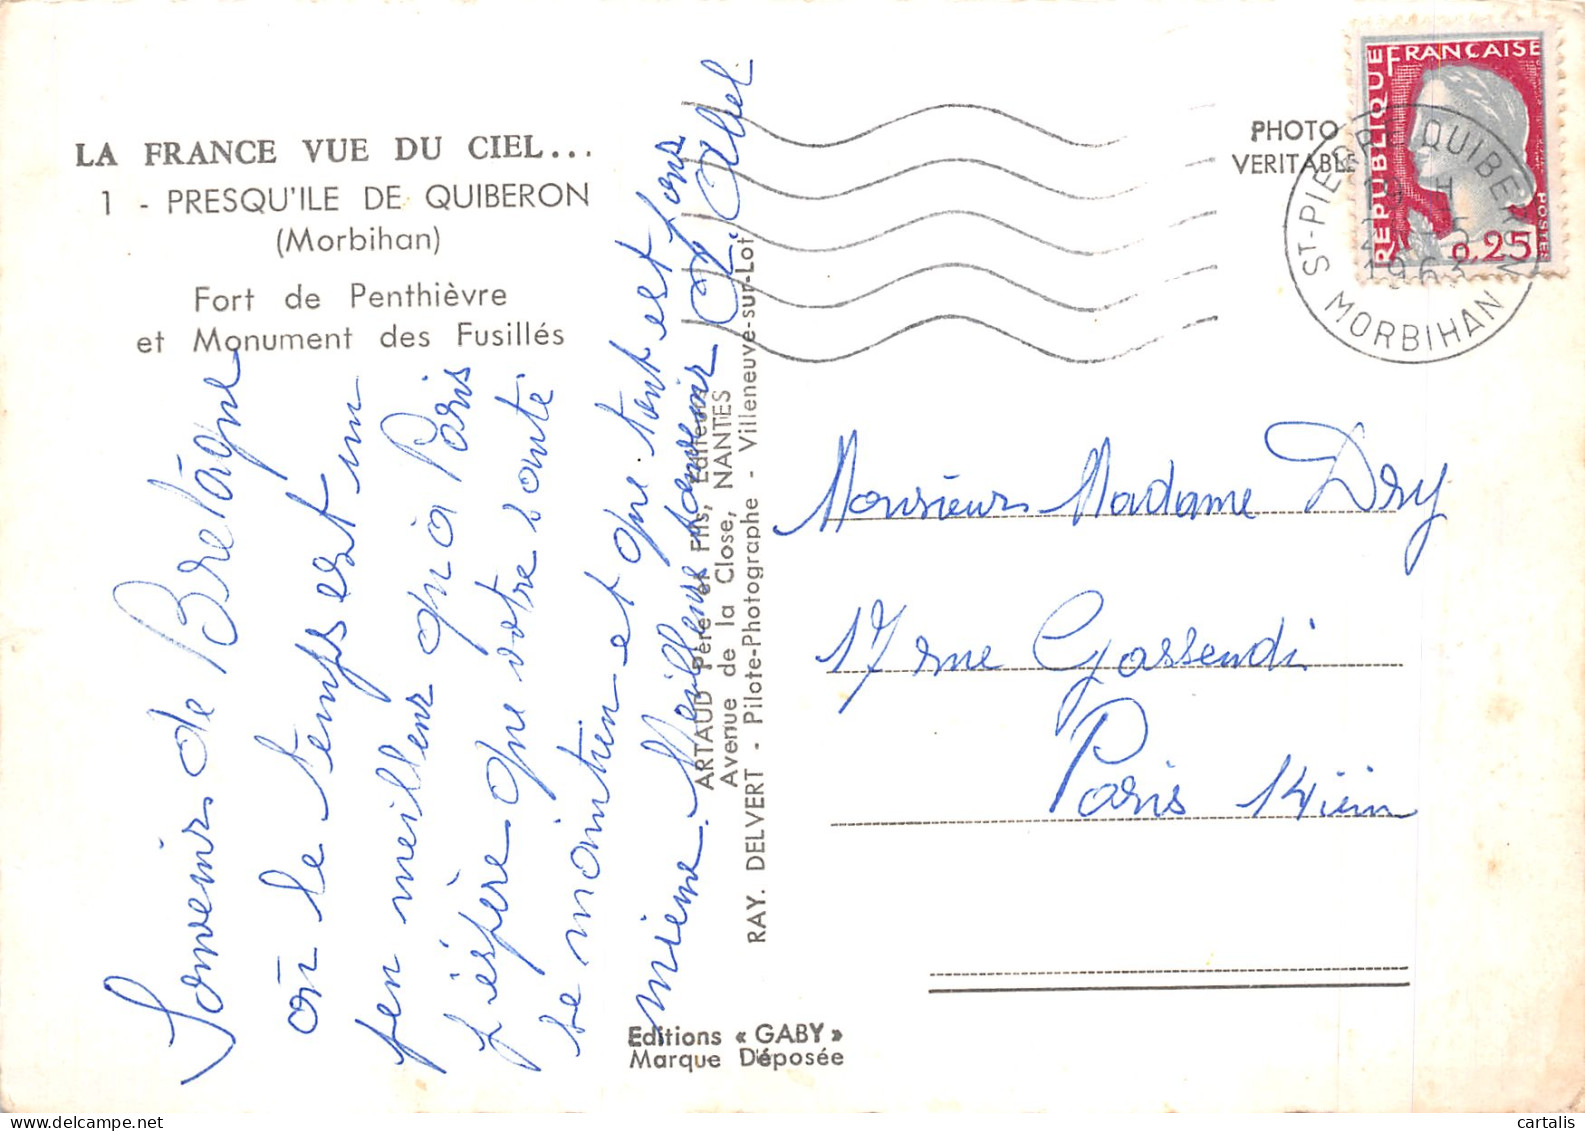 LA FRANCE VUE DU CIEL...
1 - PRESQU'ILE DE QUIBERON
(Morbihan)
Fort de Penthièvre
et Monument des Fusillés
Souvenir de Bretagne
où le temps est un
peu meilleur qu'à Paris
j'éspère que votre santé
se maintien et que tout est
mieux. Meilleur souvenir
ARTAUD Père et Fils, Editeurs
Avenue de la Close, NANTES
RAY. DELVERT - Pilote-Photographe - Villeneuve-sur-Lot
Editions « GABY »
Marque Déposée
PHOTO
VERITABLE
REPUBLIQUE FRANÇAISE
POSTES
0,25
ST-PIERRE QUIBERON
19 H
1963
MORBIHAN
Monsieur Madame Dry
17 rue Gassendi
Paris 14ièm
cartalis